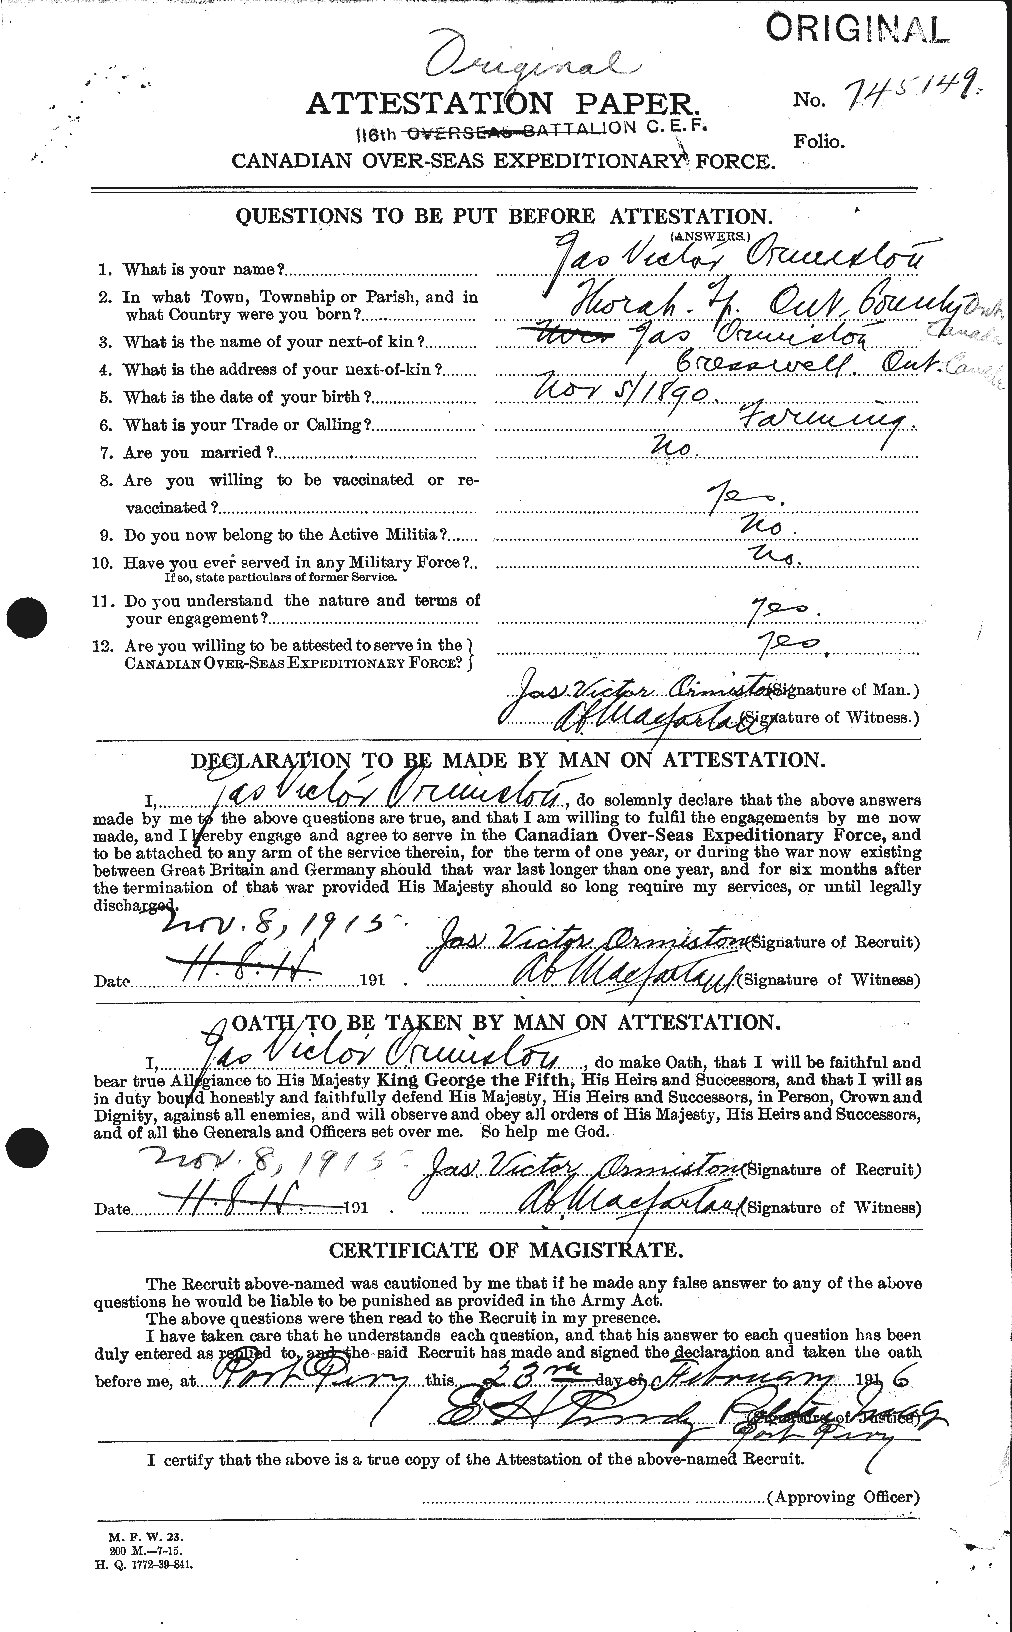 ORIGINAL
Original
ATTESTATION PAPER.
No. 745149.
116th OVERSEAS BATTALION C.E.F.
Folio.
CANADIAN OVER-SEAS EXPEDITIONARY FORCE.
QUESTIONS TO BE PUT BEFORE ATTESTATION.
(ANSWERS.)
1. What is your name? Jas Victor Ormiston
2. In what Town, Township or Parish, and in
what Country were you born? Thorah. Tp. Ont. County Ont. Canada
3. What is the name of your next-of kin? Jas Ormiston
4. What is the address of your next-of-kin? Cresswell. Ont. Canada
5. What is the date of your birth? Nov 5/1890.
6. What is your Trade or Calling? Farming.
7. Are you married? No.
8. Are you willing to be vaccinated or re-
vaccinated? Yes.
9. Do you now belong to the Active Militia? No.
10. Have you ever served in any Military Force? No.
If so, state particulars of former Service.
11. Do you understand the nature and terms of
your engagement? Yes.
12. Are you willing to be attested to serve in the
CANADIAN OVER-SEAS EXPEDITIONARY FORCE? Yes.
Jas Victor Ormiston (Signature of Man.)
Ab. Macfarlane (Signature of Witness.)
DECLARATION TO BE MADE BY MAN ON ATTESTATION.
I, Jas Victor Ormiston, do solemnly declare that the above answers
made by me to the above questions are true, and that I am willing to fulfil the engagements by me now
made, and I hereby engage and agree to serve in the Canadian Over-Seas Expeditionary Force, and
to be attached to any arm of the service therein, for the term of one year, or during the war now existing
between Great Britain and Germany should that war last longer than one year, and for six months after
the termination of that war provided His Majesty should so long require my services, or until legally
discharged.
Nov. 8, 1915.
Jas Victor Ormiston (Signature of Recruit)
Date 191 . Ab Macfarlane (Signature of Witness)
OATH TO BE TAKEN BY MAN ON ATTESTATION.
I, Jas Victor Ormiston, do make Oath, that I will be faithful and
bear true Allegiance to His Majesty King George the Fifth, His Heirs and Successors, and that I will as
in duty bound honestly and faithfully defend His Majesty, His Heirs and Successors, in Person, Crown and
Dignity, against all enemies, and will observe and obey all orders of His Majesty, His Heirs and Successors,
and of all the Generals and Officers set over me. So help me God.
Nov. 8, 1915 Jas Victor Ormiston (Signature of Recruit)
Date 191 . Ab. Macfarlane (Signature of Witness)
CERTIFICATE OF MAGISTRATE.
The Recruit above-named was cautioned by me that if he made any false answer to any of the above
questions he would be liable to be punished as provided in the Army Act.
The above questions were then read to the Recruit in my presence.
I have taken care that he understands each question, and that his answer to each question has been
duly entered as replied to, and the said Recruit has made and signed the declaration and taken the oath
before me, at Port Perry this 23rd day of February 1916
E H Purdy Police Mag (Signature of Justice)
Port Perry
I certify that the above is a true copy of the Attestation of the above-named Recruit.
(Approving Officer)
M. F. W. 23.
200 M.—7-15.
H. Q. 1772-39-841.